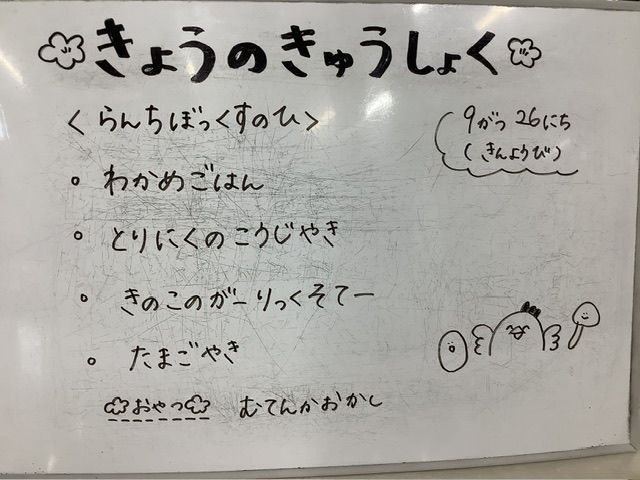 きょうのきゅうしょく
<らんちぼっくすのひ>
9がつ 26にち
(きんようび)
• わかめごはん
• とりにくのこうじやき
• きのこのがーりっくそてー
• たまごやき
おやつ むてんかおかし